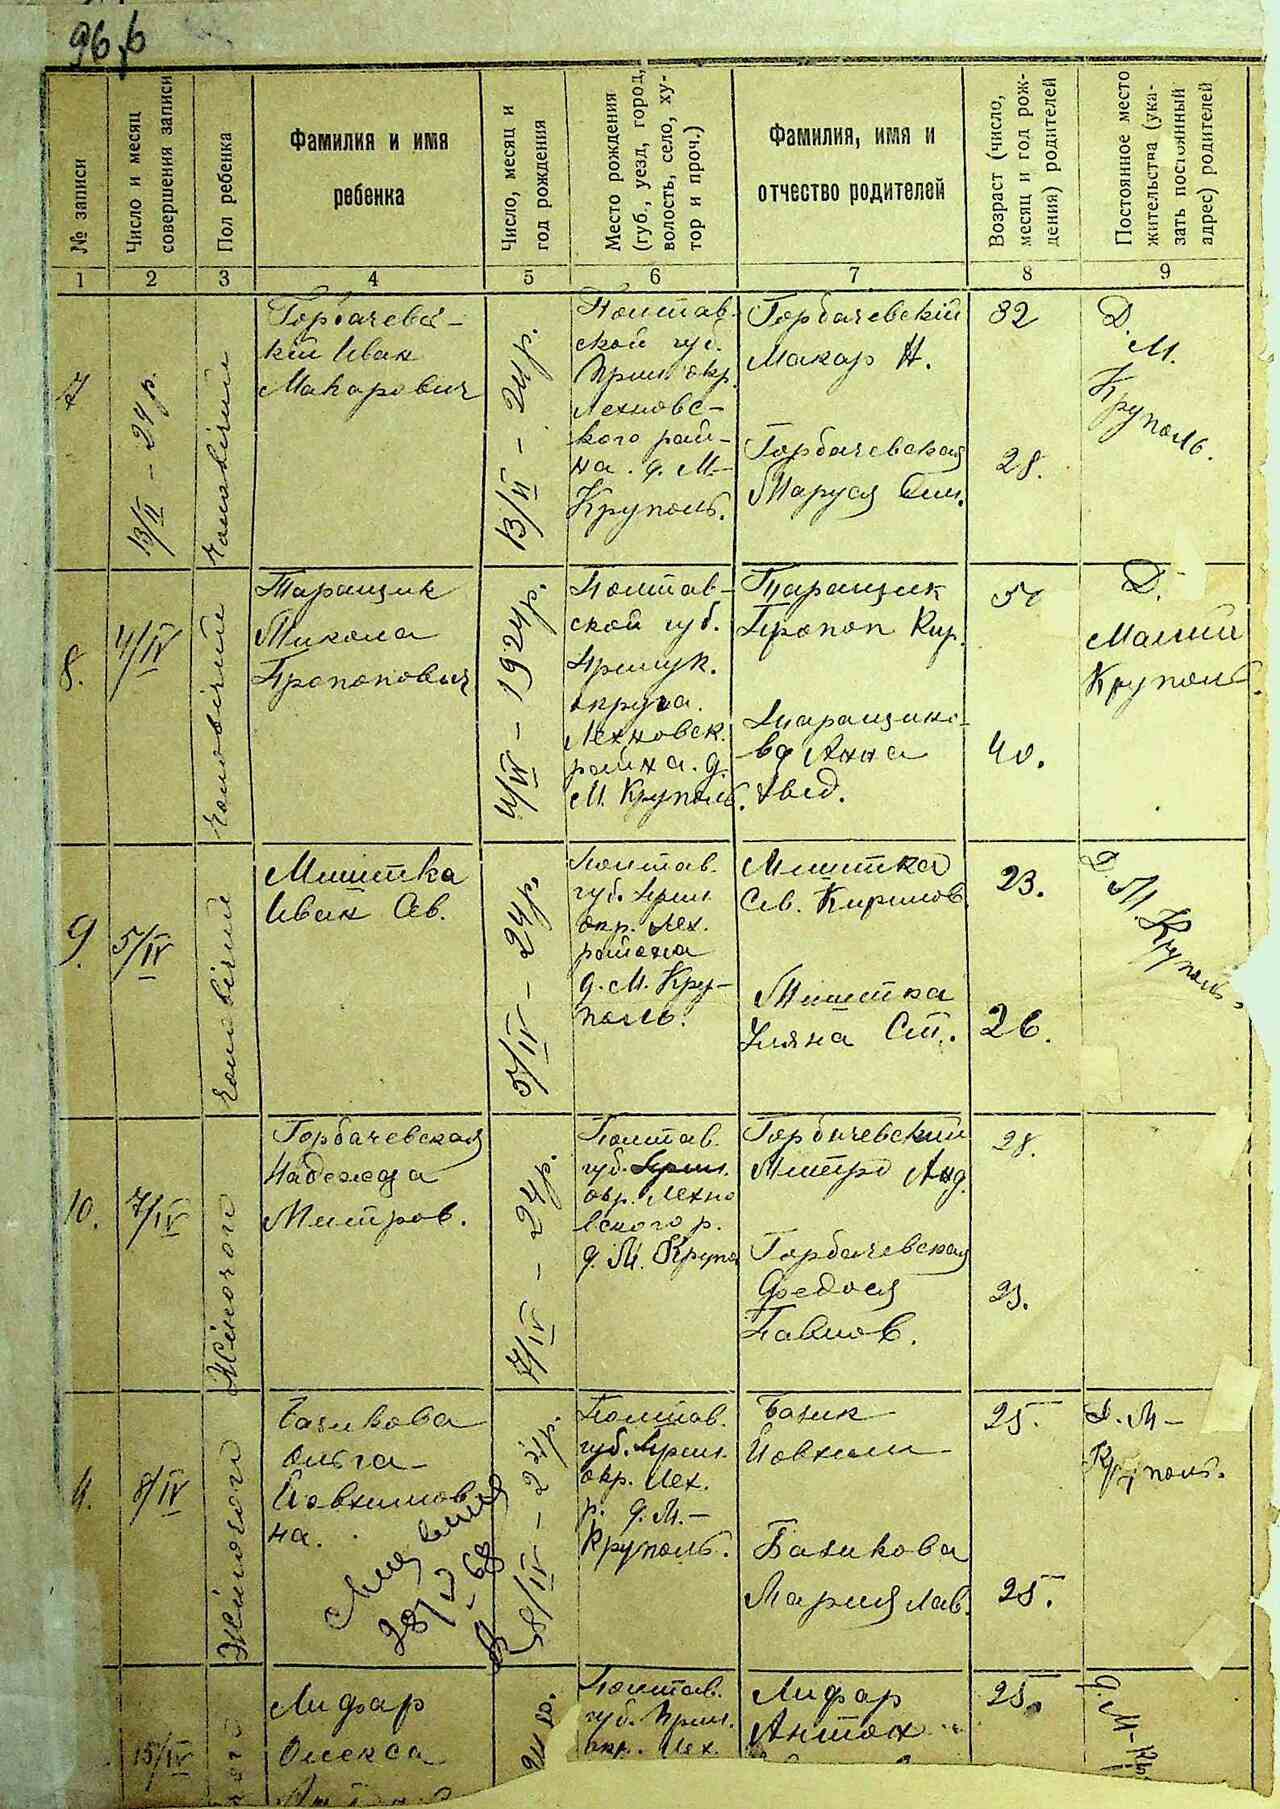 96,6
№ записи
Число и месяц
совершения записи
Пол ребенка
Фамилия и имя
ребенка
Число, месяц и
год рождения
Место рождения
(губ., уезд, город,
волость, село, ху-
тор и проч.)
Фамилия, имя и
отчество родителей
Возраст (число,
месяц и год рож-
дения) родителей
Постоянное место
жительства (ука-
зать постоянный
адрес) родителей
1 2 3 4 5 6 7 8 9
7
13/II – 24 р.
Горбачевс-
кій Иван
Макарович
13/II – 24 р.
Полтав-
ской губ.
Прил. окр.
Лехновс-
кого рай-
на. д. М-
Круполь.
Горбачевскій
Макар Н.
Горбачевская
Маруся
32
28.
Д.
М.
Круполь.
8.
4/IV
Таращик
Микола
Пропопович
4/IV – 1924 р.
Полтав-
ской губ.
Прилук.
округа.
Лехновск.
района. д.
М. Круполь.
Таращик
Пропоп Кир.
Таращико-
ва Анна
Авед.
40.
Д.
Малий
Круполь.
9.
5/IV
Чоловічий
Милтка
Иван Сав.
5/IV – 24 р.
Полтав.
губ. Прил.
окр. Лех.
района
д. М. Кру-
поль.
Кирилов.
Уляна Ст.
23.
26.
Д. М. Круполь.
10.
7/IV
Жіночого
Горбачевская
Надежда
Митров.
7/IV – 24 р.
Полтав.
губ. Прил.
окр. Лехно
вского р.
д. М. Крупо
Горбачевский
Митро Анд.
Горбачевская
Федося
Павлов.
28.
8/IV
Жіночого
Базикова
Ольга
Йовхимов
на.
28/V-68
8/IV – 24 р.
Полтав.
губ. Прил.
окр. Лех.
р. д. М.-
Круполь.
Базик
Йовхим
Базикова
Мария Лав.
25.
25.
Д. М-
Круполь.
15/IV
Лифар
Олекса
Полтав.
губ. Прил.
окр. Лех.
Лифар
Антон
25.
д. М-